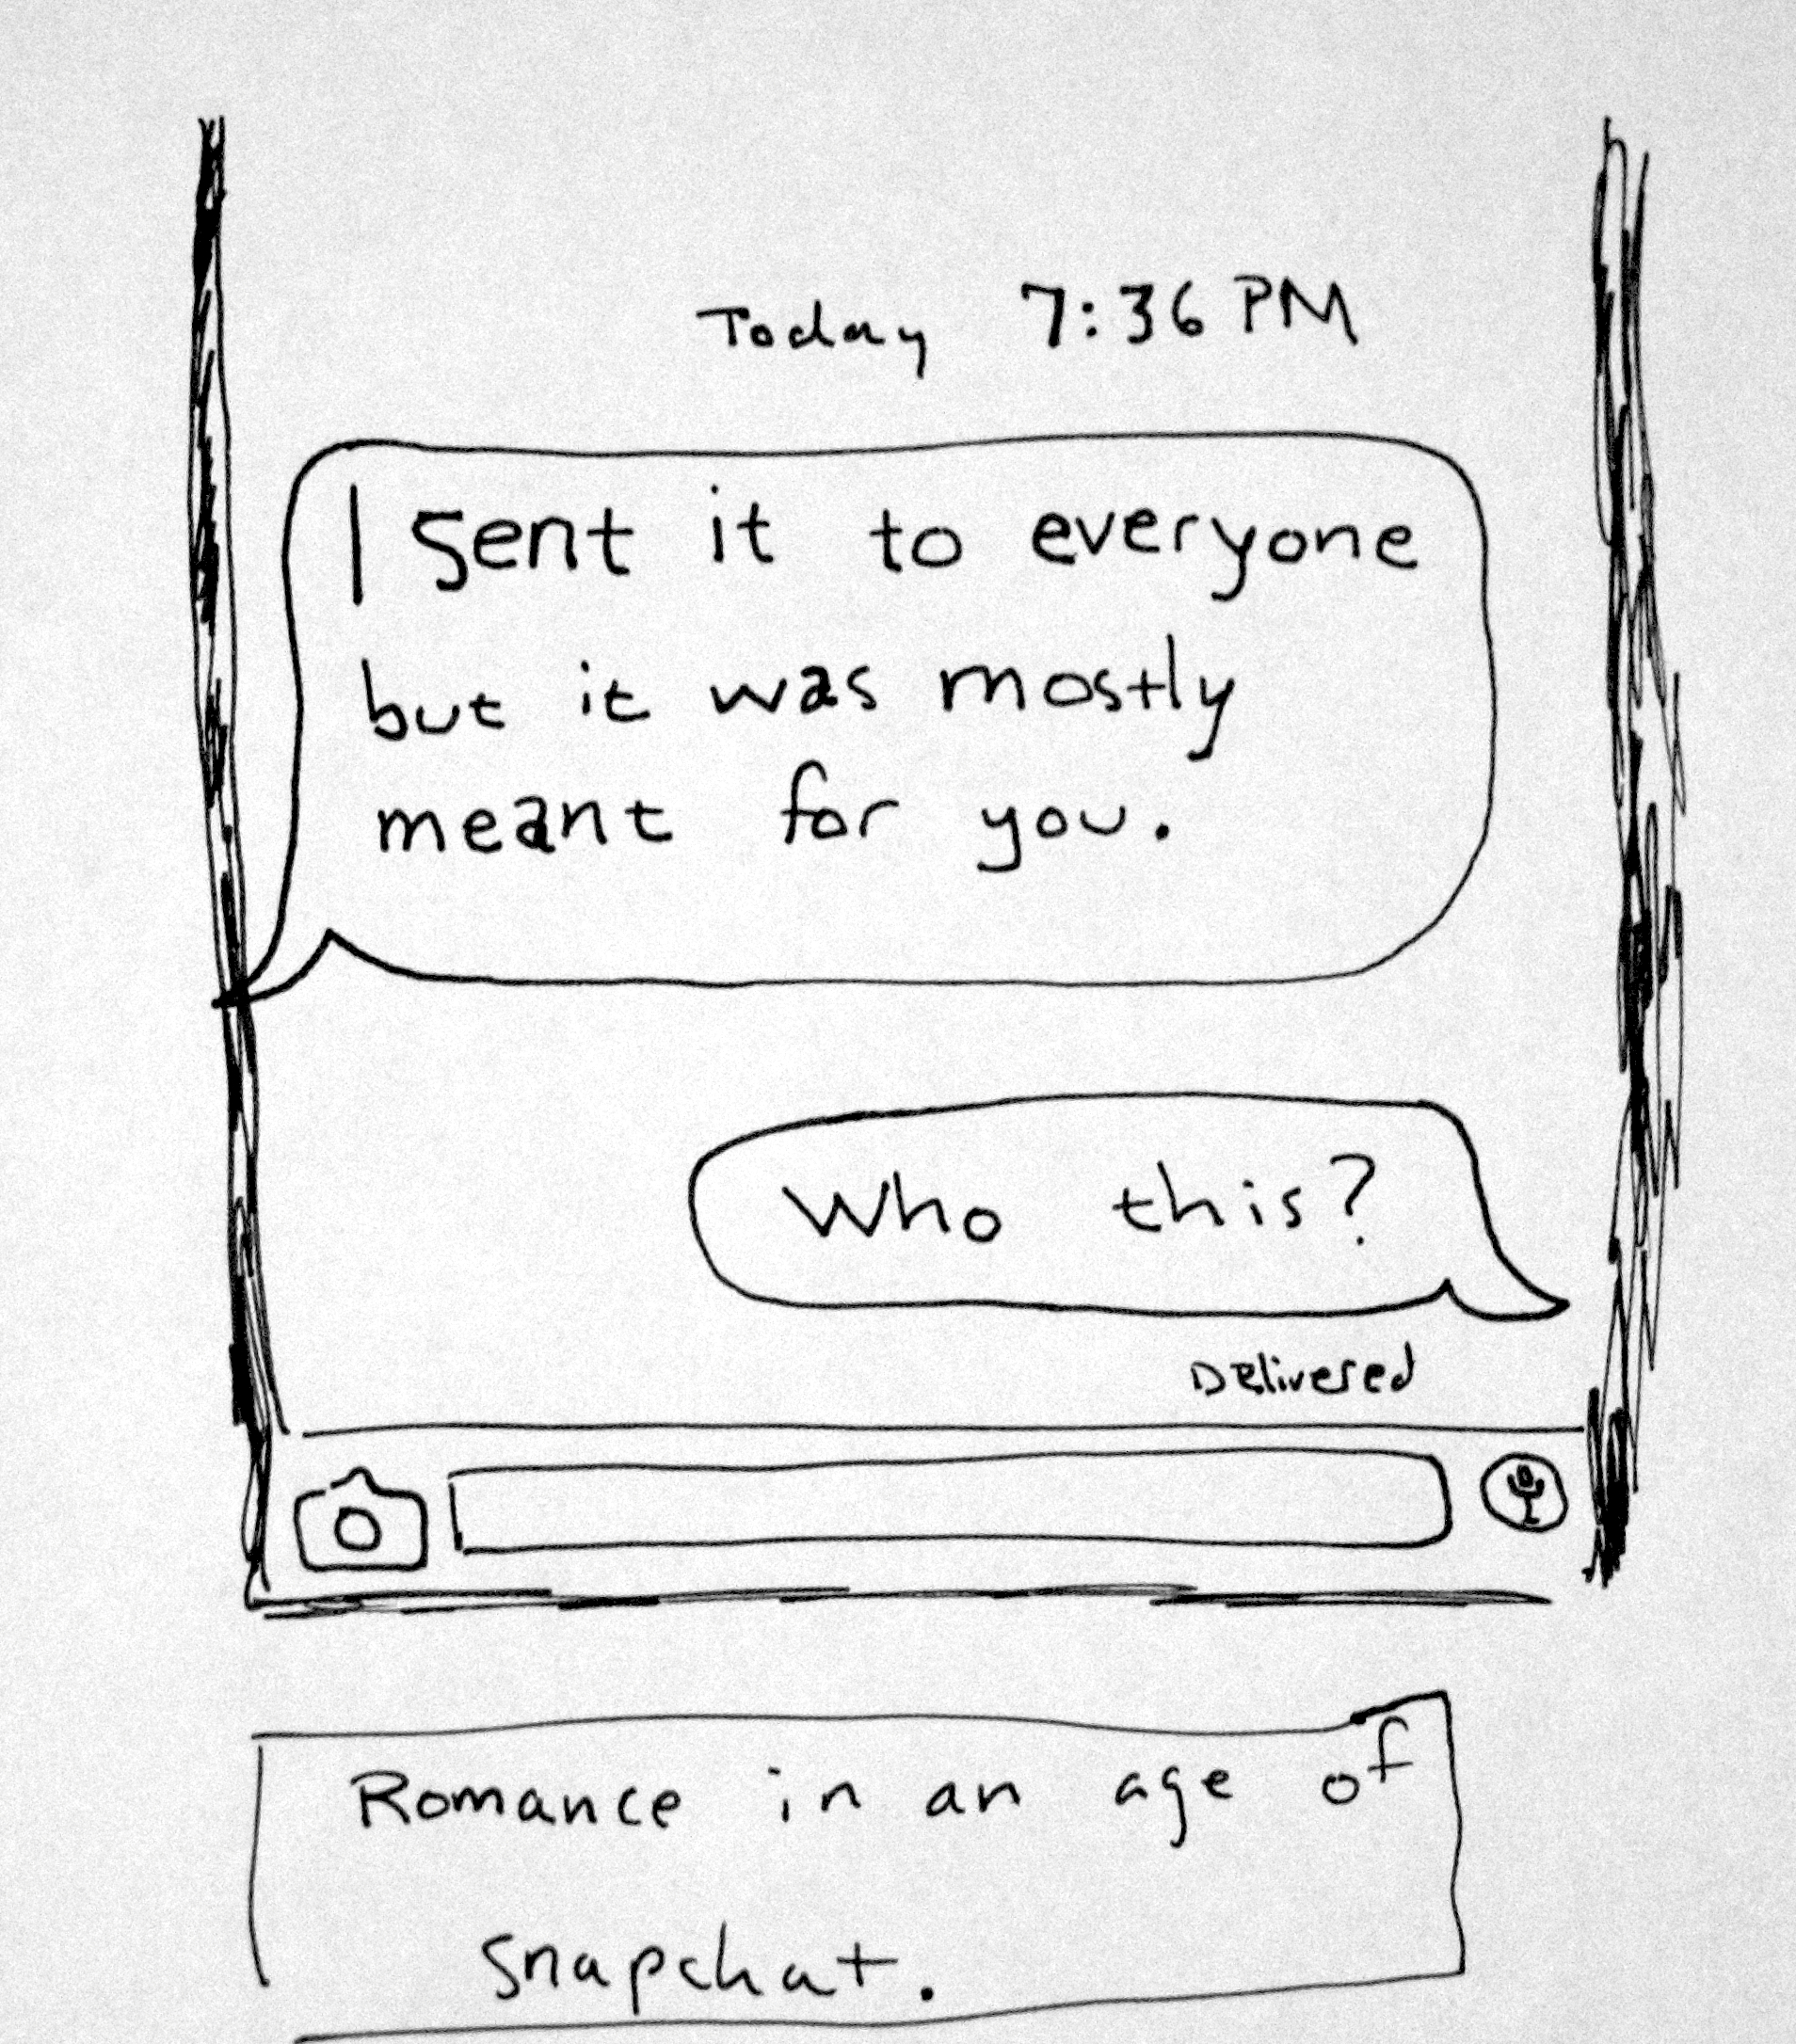 Today 7:36 PM
I sent it to everyone
but it was mostly
meant for you.
Who this?
Delivered
Romance in an age of
snapchat.